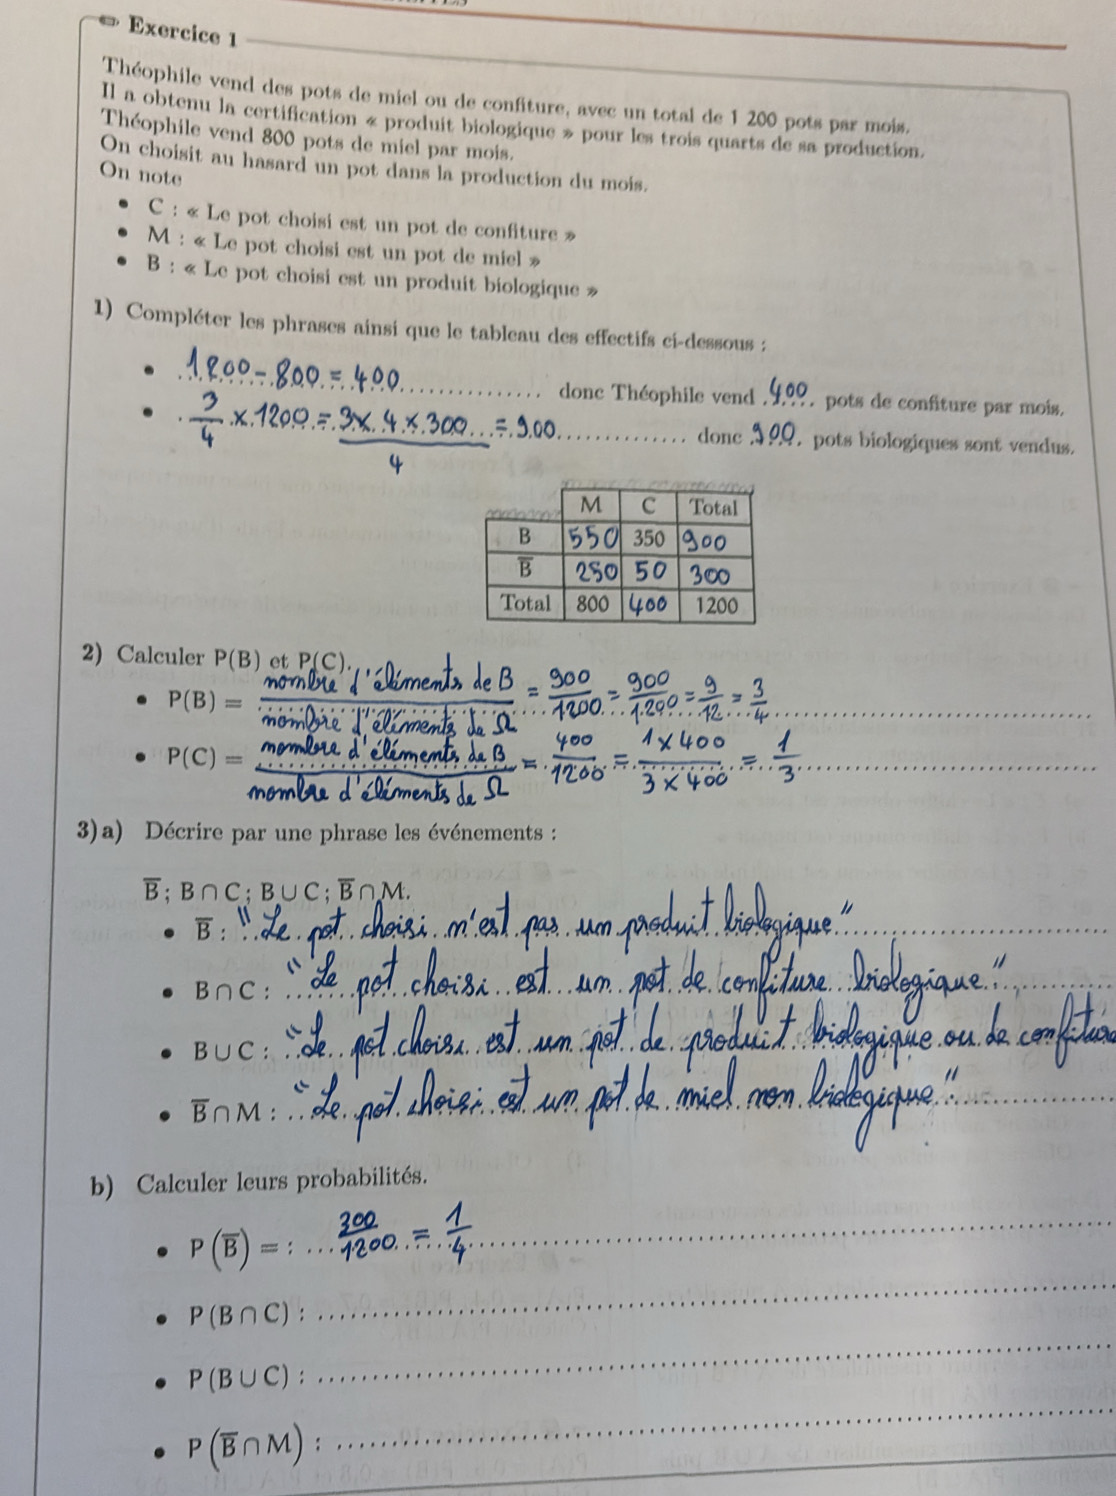 Exercice 1
Théophile vend des pots de miel ou de confiture, avec un total de 1 200 pots par mois.
Il a obtenu la certification « produit biologique » pour les trois quarts de sa production.
Théophile vend 800 pots de miel par mois.
On choisit au hasard un pot dans la production du mois.
On note
• C : « Le pot choisi est un pot de confiture »
• M : « Le pot choisi est un pot de miel »
• B : « Le pot choisi est un produit biologique »
1) Compléter les phrases ainsi que le tableau des effectifs ci-dessous :
• 1200 - 800 = 400 donc Théophile vend 400 pots de confiture par mois.
• 3/4 × 1200 = (3 × 4 × 300)/4 = 900 donc 900 pots biologiques sont vendus.
M C Total
B 550 350 900
B̅ 250 50 300
Total 800 400 1200
2) Calculer P(B) et P(C).
• P(B) = nombre d'éléments de B / nombre d'éléments de Ω = 900/1200 = 900/1200 = 9/12 = 3/4
• P(C) = nombre d'éléments de B / nombre d'éléments de Ω = 400/1200 = (1 × 400)/(3 × 400) = 1/3
3) a) Décrire par une phrase les événements :
B̅ ; B ∩ C ; B ∪ C ; B̅ ∩ M.
• B̅ : "Le pot choisi n'est pas un produit biologique"
• B ∩ C : "Le pot choisi est un pot de confiture biologique"
• B ∪ C : "Le pot choisi est un pot de produit biologique ou de confiture
• B̅ ∩ M : "Le pot choisi est un pot de miel non biologique"
b) Calculer leurs probabilités.
• P(B̅) = : 300/1200 = 1/4
• P(B ∩ C) :
• P(B ∪ C) :
• P(B̅ ∩ M) :